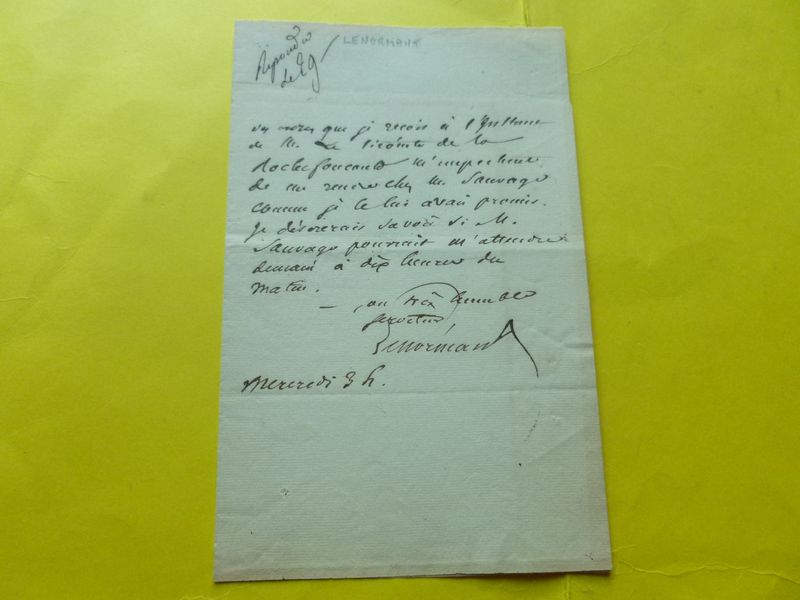 LENORMANT
Répondu
le 29
que je reçois à l'instant
de M. Le Vicomte de la
Rochefoucauld m'empechent
de me rendre chez M. Sauvage
comme je le lui avais promis.
Je désirerais savoir si M.
Sauvage pourrait m'attendre
demain à dix heures du
matin.
très humble
serviteur
Lenormant
Mercredi 3 h.